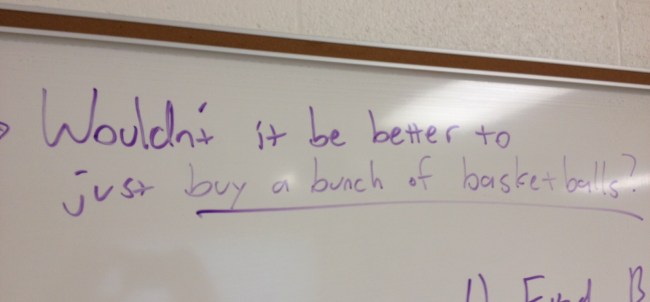 Wouldn't it be better to
just buy a bunch of basketballs?
1) Find B